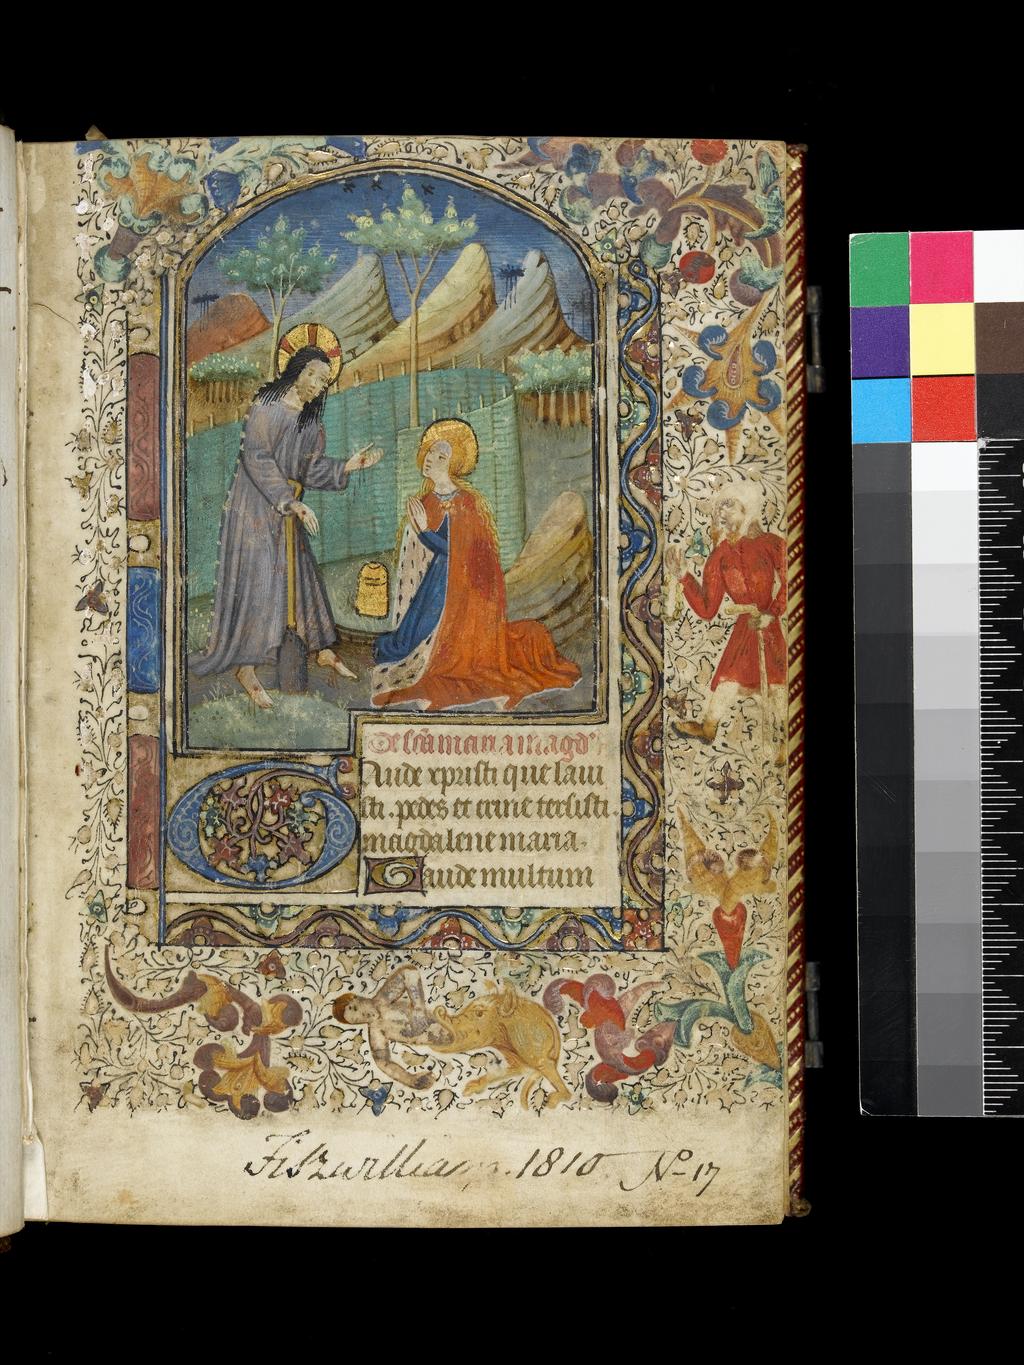 De sc̃a maria magd'
Gaude xp̃risti que laui
sti. pedes et crine tersisti.
magdalene maria.
Gaude multum
Fitzwilliam. 1810 No 17